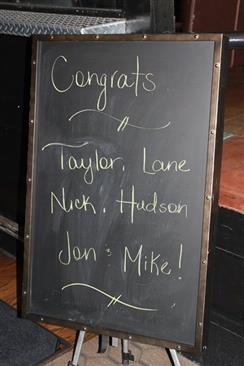 Congrats
Taylor, Lane
Nick, Hudson
Jon & Mike!